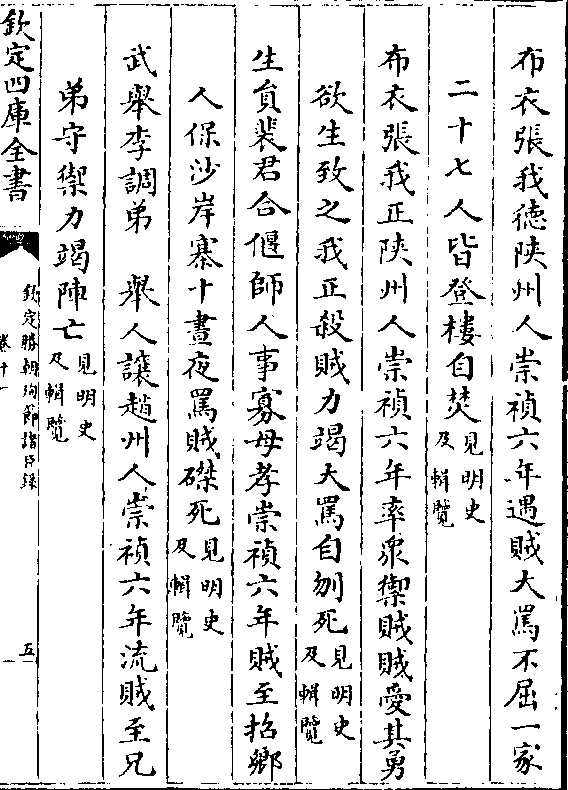 布衣張我德陝州人崇禎六年遇賊大罵不屈一家
二十七人皆登樓自焚見明史及輯覽
布衣張我正陝州人崇禎六年率衆禦賊賊愛其勇
欲生致之我正殺賊力竭大罵自刎死見明史及輯覽
生員裴君合偃師人事寡母孝崇禎六年賊至招鄉
人保沙岸寨十晝夜罵賊磔死見明史及輯覽
武舉李調弟 舉人讓趙州人崇禎六年流賊至兄
弟守禦力竭陣亡見明史及輯覽
欽定四庫全書
欽定勝朝殉節諸臣錄
卷十一
五